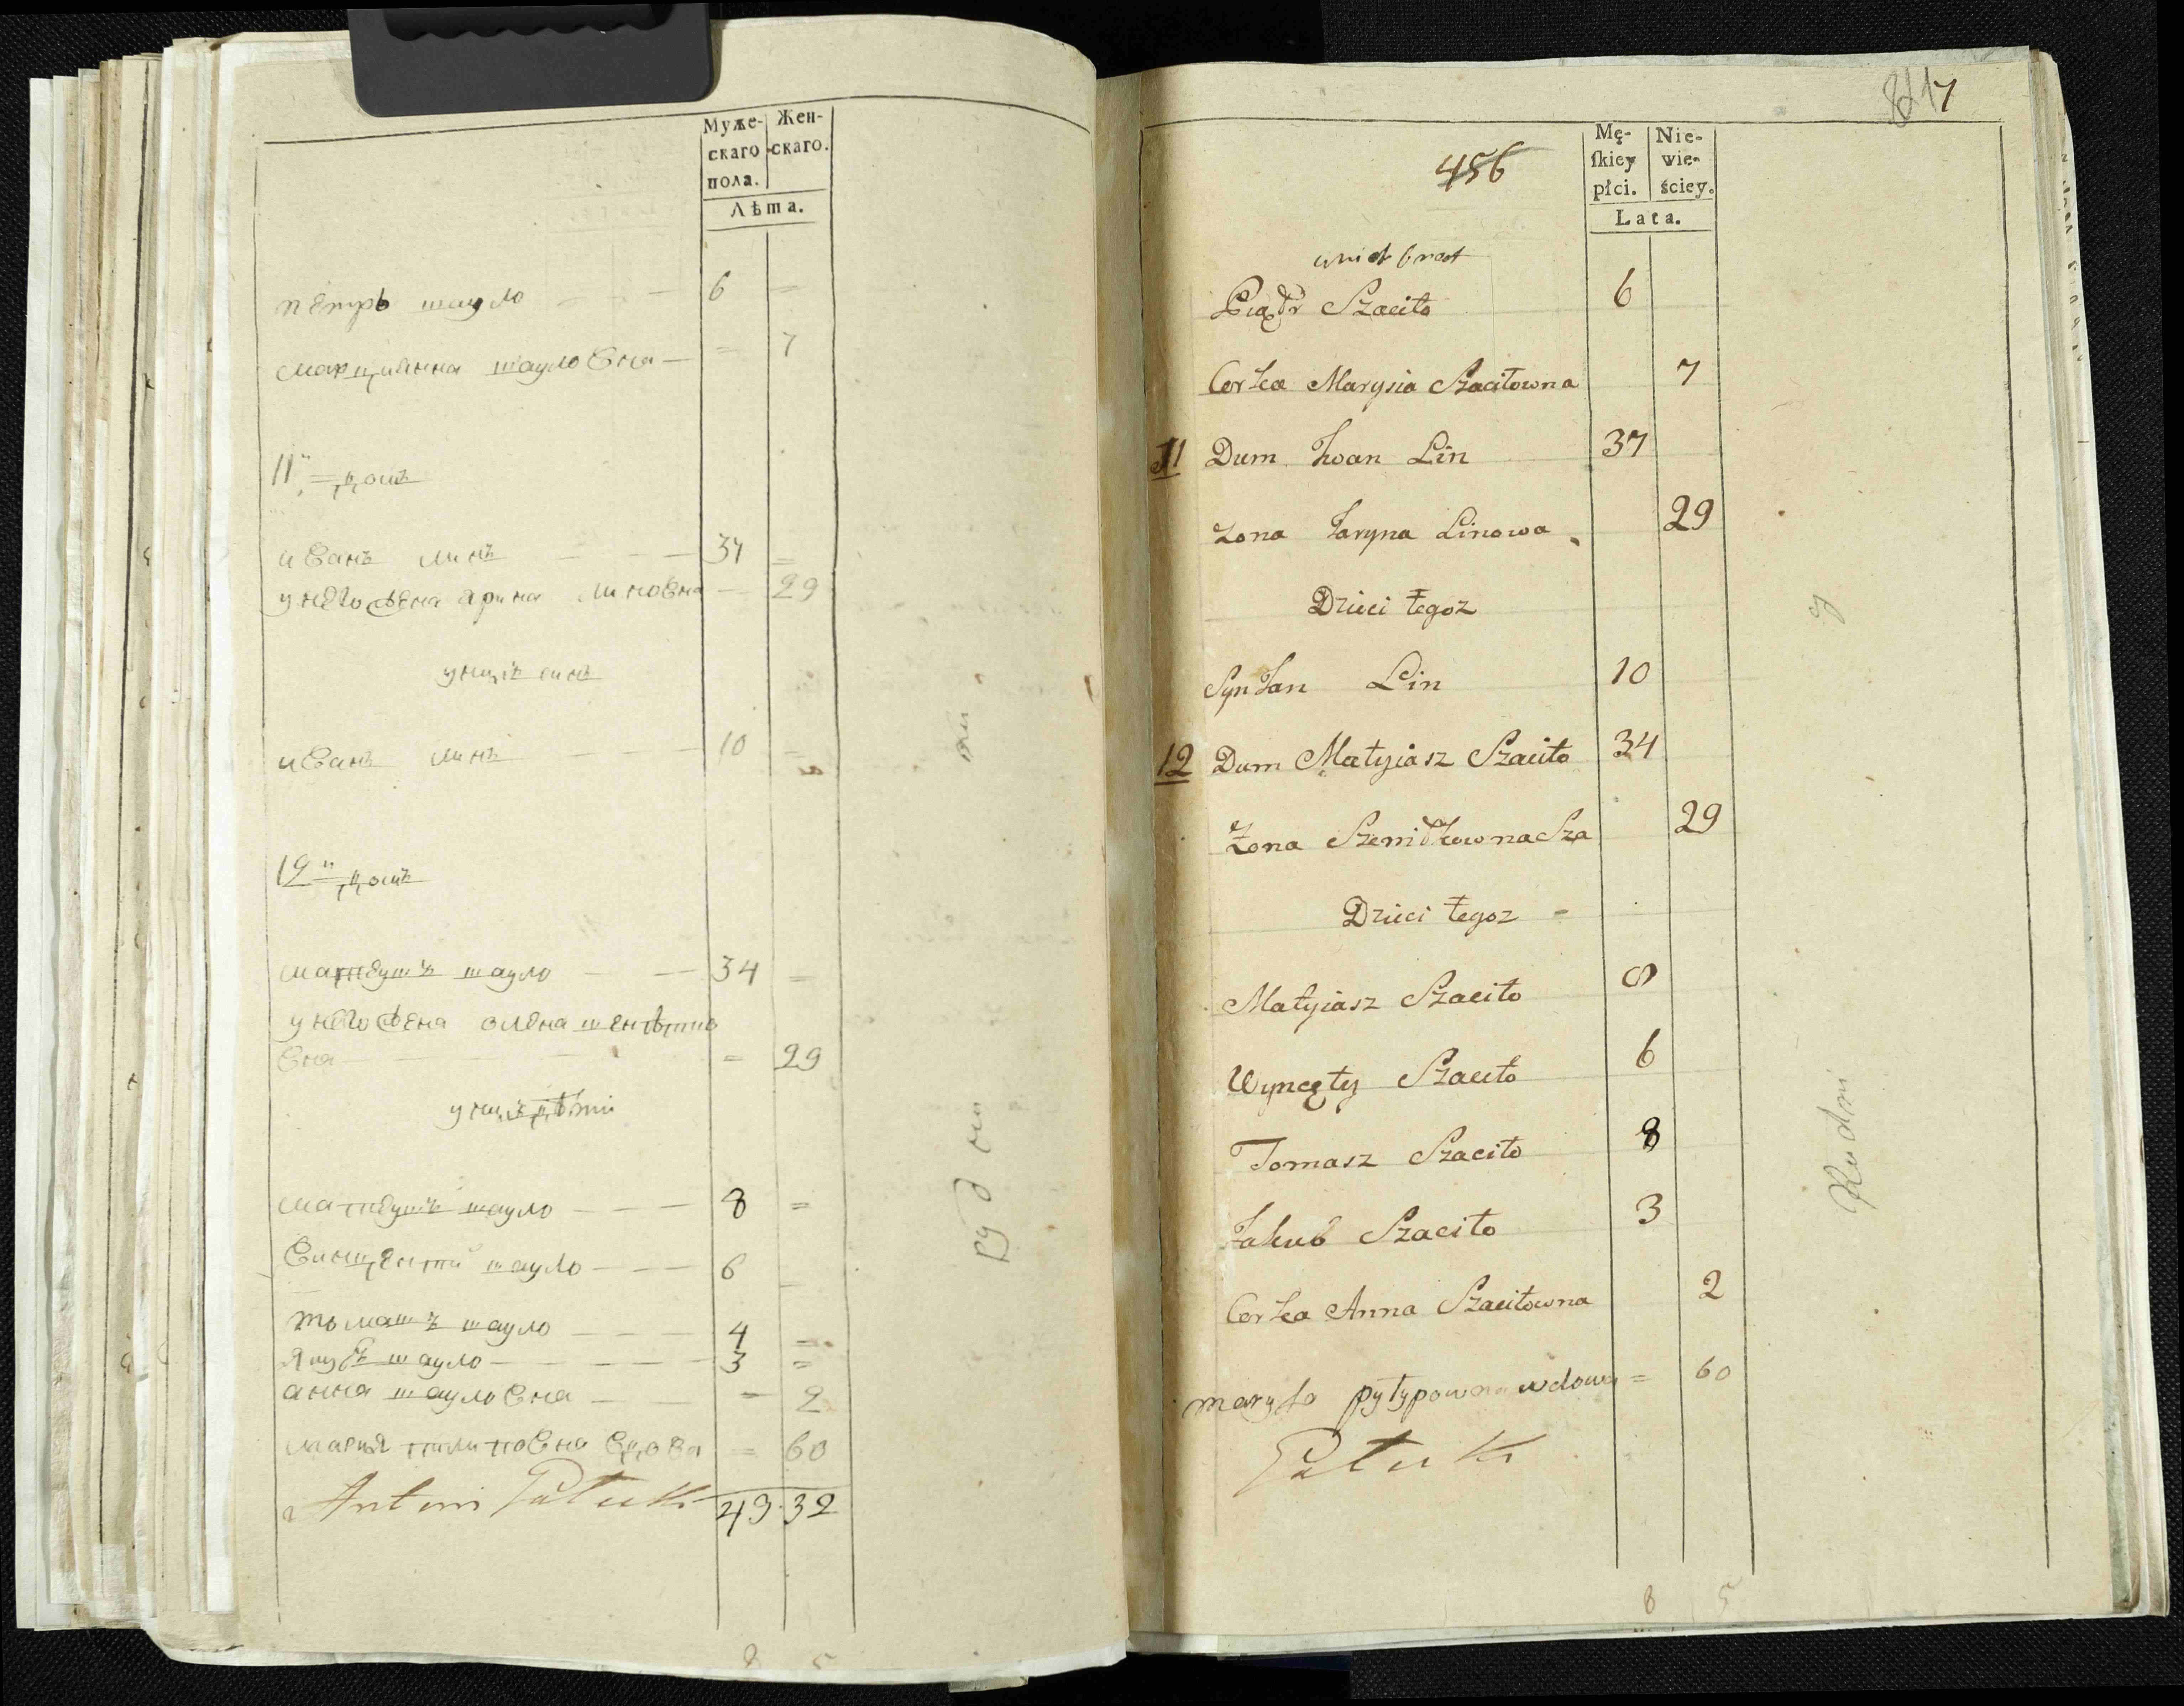 Муже-
скаго
пола.
Жен-
скаго.
Лѣта.
петръ шацло 6 =
марцианна шацловна — = 7
11 = домъ
иванъ линъ — — — 37 =
унего жена арина линовна — 29
унихъ синъ
иванъ линъ — — — 10 =
12 домъ
матеушъ шацло — — 34 =
унего жена олена
вна — — — = 29
унихъ дѣти
матеушъ шацло — — — 8 =
винценти шацло — — — 6
томашъ шацло — — — 4 =
якубъ шацло — — — — 3 =
анна шацловна — — = 2
мария пилиповна вдова = 60
Antoni
49 32
рудни
8 5
817
456
Mę-
ſkiey
płci.
Nie-
wie-
ściey.
Lata.
unich brat
Piąotr Szaciło 6
Corka Marysia Szaciłowna 7
11 Dum Iwan Lin 37
Zona Jaryna Linowa 29
Dzieci tegoz
Syn Jan Lin 10
12 Dum Matyiasz Szaciło 34
Zona Sza 29
Dzieci tegoz
Matyiasz Szaciło 8
Wyncęty Szaciło 6
Tomasz Szaciło 8
Jakub Szaciło 3
Corka Anna Szaciłowna 2
maryla pyłypowna wdowa = 60
Rudni
8 5